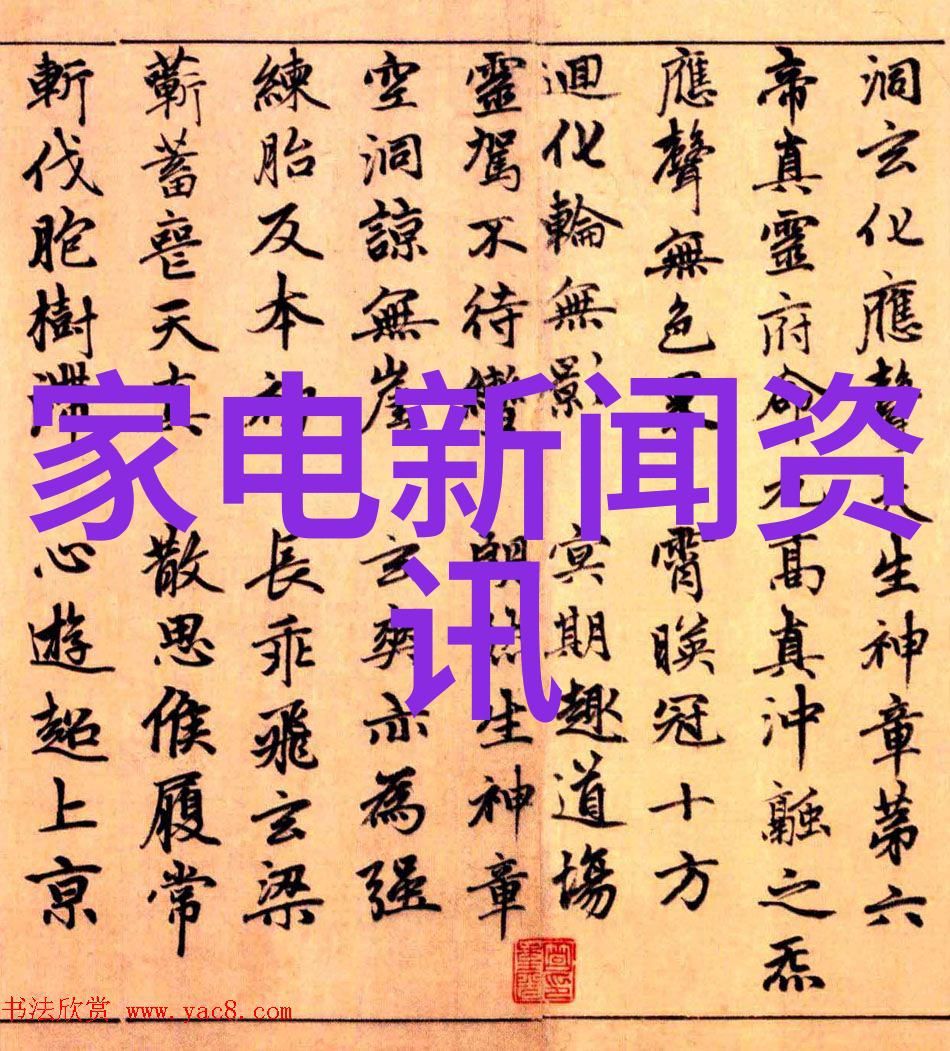 洞玄化應聲天生神章第六
帝真靈府命元高真沖融之炁
應聲無色界 霄暎冠十方
迴化輪無影 冥期趣道場
靈駕不待轡 朗然生神章
空洞諒無崖 玄爽亦為强
練胎反本初 長乖飛玄梁
蘄蓄喪天真 散思候履常
斬伐胞樹滯 心遊超上亰
家电新闻资
讯
书法欣赏 www.yac8.com